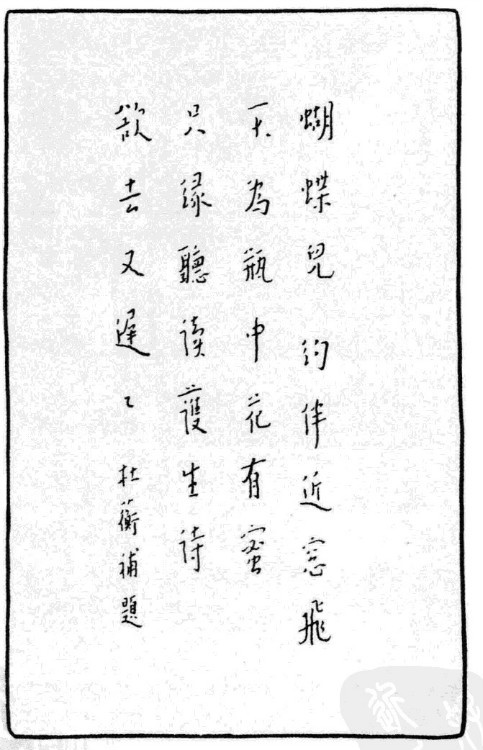 蝴蝶兒 約伴近窓飛
不為瓶中花有蜜
只緣聽讀護生詩
欲去又遲〻 杜蘅補題